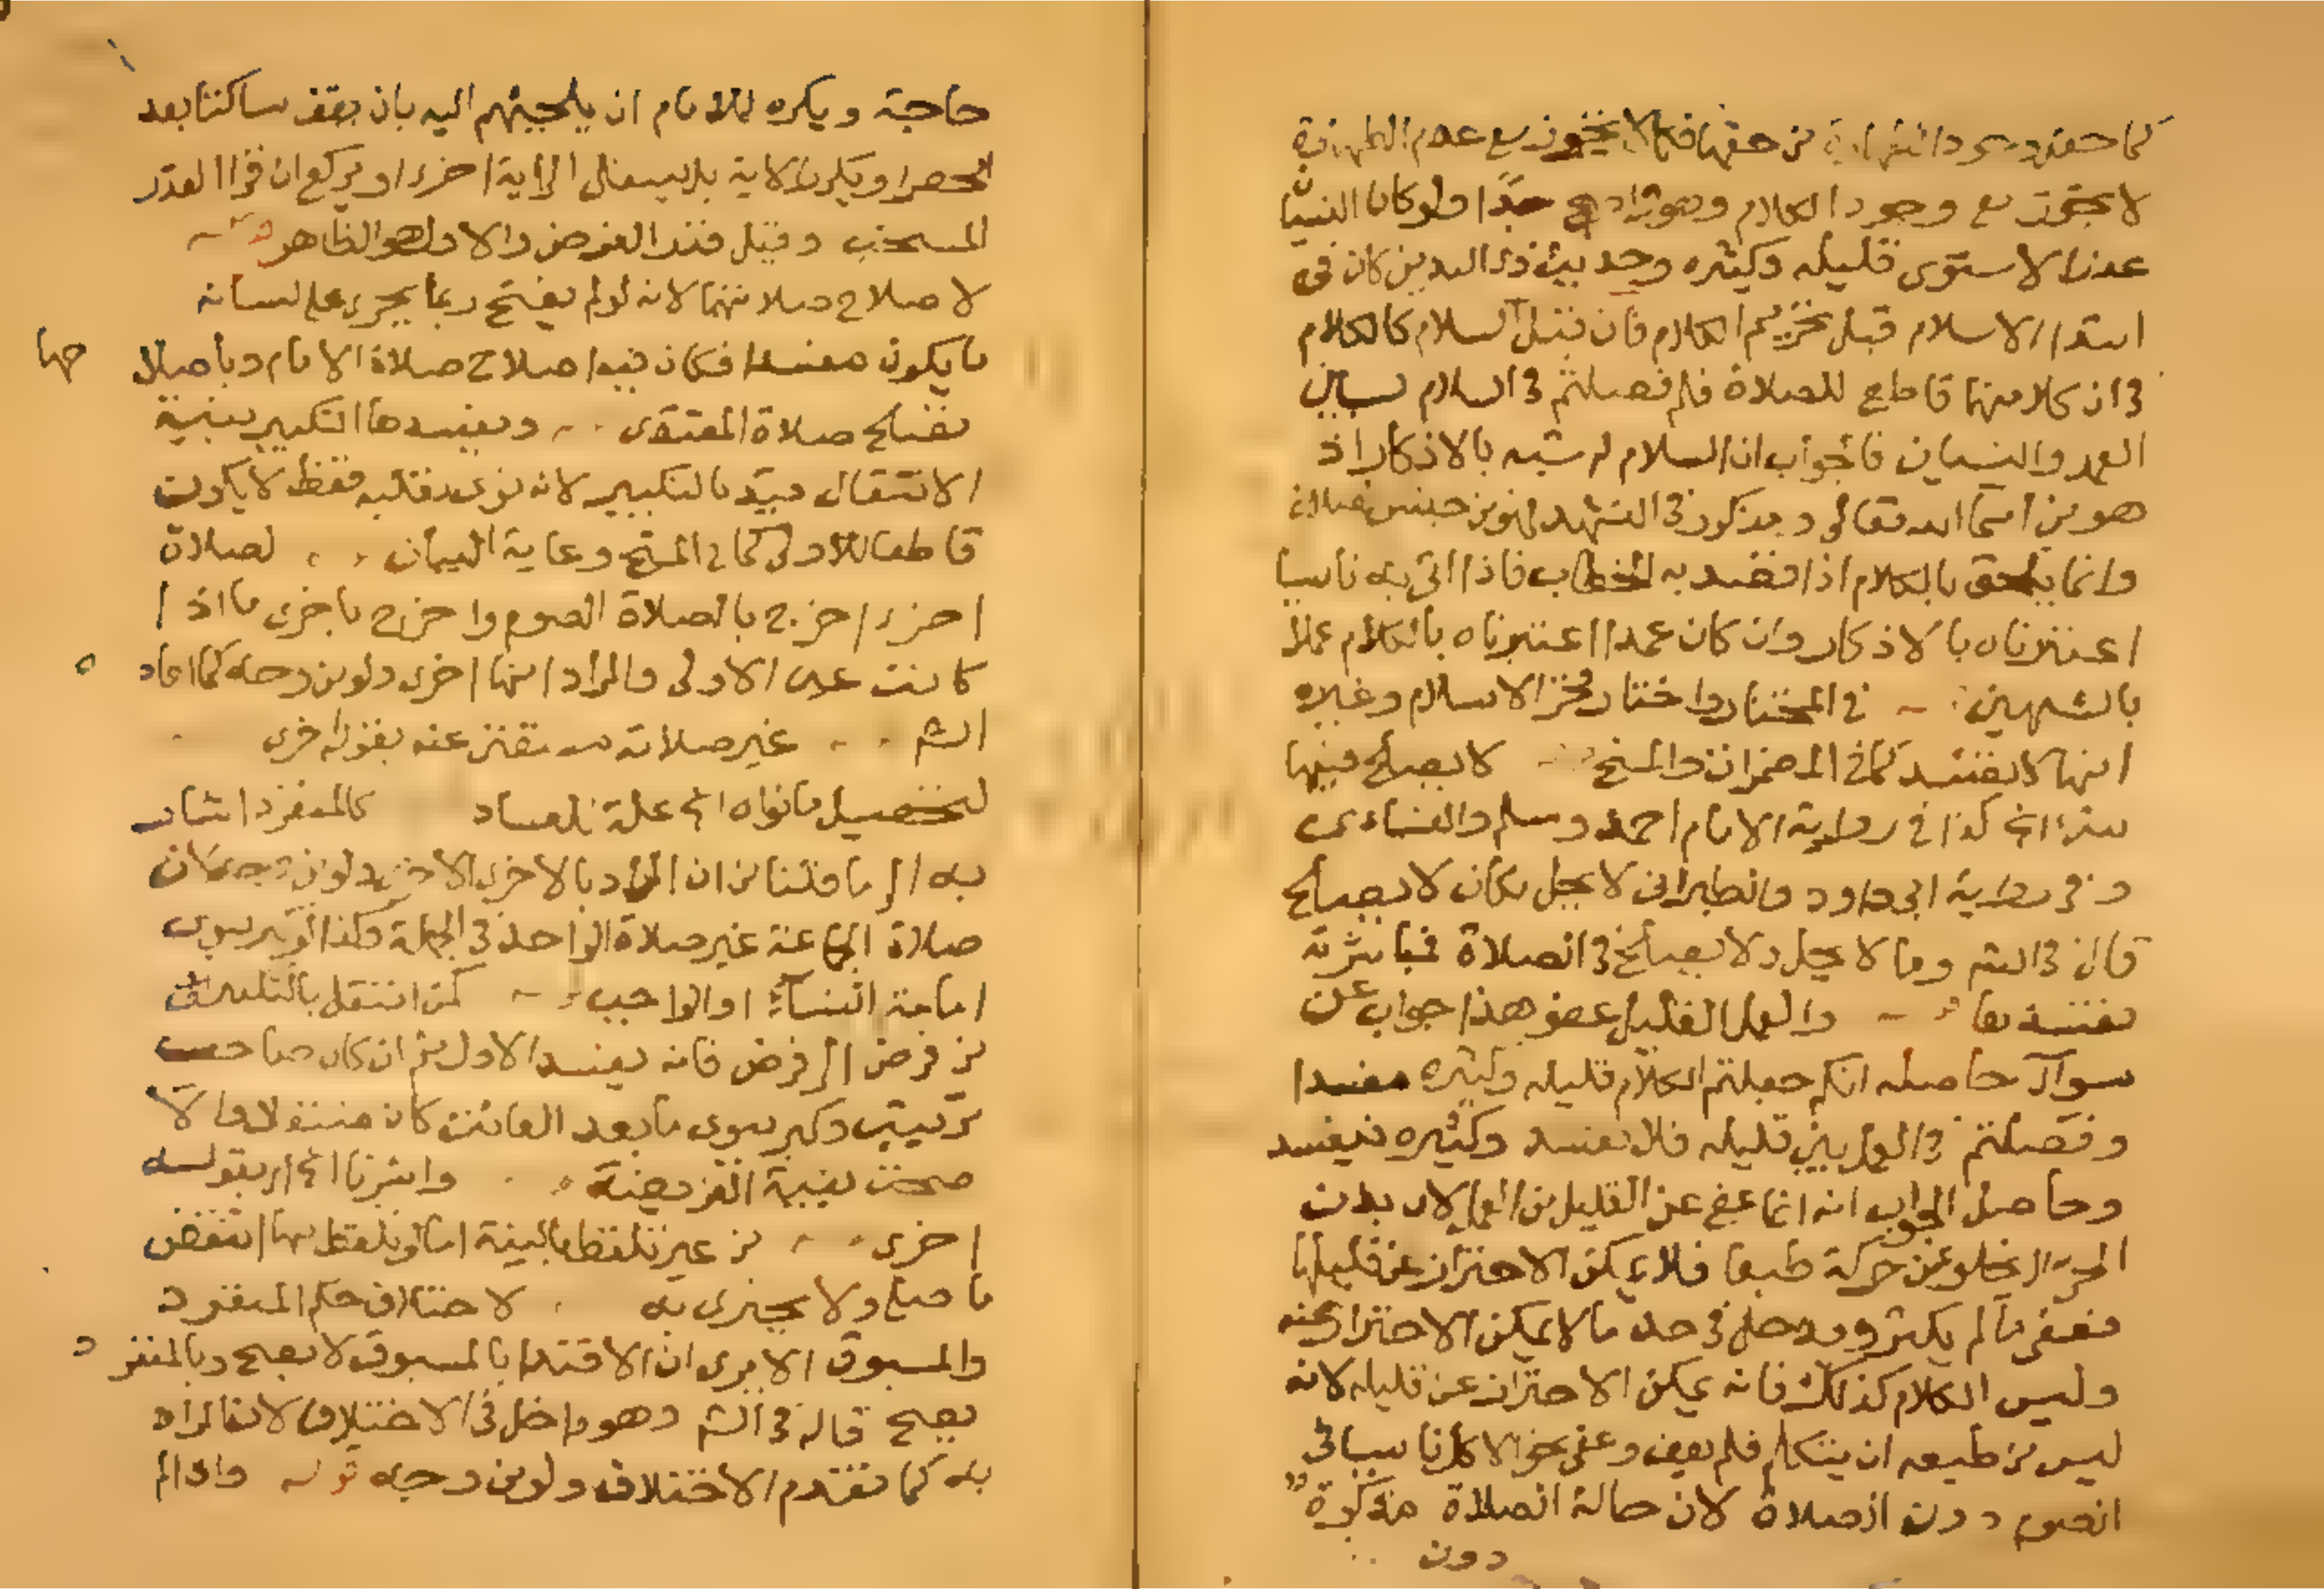 كما حقه وجود الطهارة من حقها فكما لا يجوز مع عدم الطهارة
لا يجوز مع وجود الكلام وهو جدا ولو كان النسيان
عذرا لاستوى قليله وكثيره وحديث ذي اليدين كان في
ابتداء الاسلام قبل تحريم الكلام فان قيل السلام كالكلام
في ان كلا منهما قاطع للصلاة فلم فصلتم في السلام بين
العمد والنسيان فالجواب ان السلام له شبه بالاذكار اذ
هو من اسما الله تعالى ومذكور في التشهد فهو من جنس
وانما يلحق بالكلام اذا قصد به الخطاب فاذا اتى به ناسيا
اعتبرناه بالاذكار وان كان عمدا اعتبرناه بالكلام عملا
بالشبهين في المختار واختار فخر الاسلام وغيره
انها لا تفسد كما في المضمرات والمنح لا يصلح فيها
شئ الخ كذا في رواية الامام احمد ومسلم والنسائى
وفي رواية ابى داود والطبرانى لا يحل مكان لا يصلح
قال في الشر وما لا يحل ولا يصلح في الصلاة فمباشرته
تفسدها والعمل القليل عفو هذا جواب عن
سوال حاصله انكم جعلتم الكلام قليله وكثيره مفسدا
وفصلتم في العمل بين قليله فلا يفسد وكثيره فيفسد
وحاصل الجواب انه انما عفي عن القليل من العمل لان بدن
الحى لا يخلو عن حركة طبعا فلا يمكن الاحتراز عن قليلها
فعفى ما لم يكثر ويدخل في حد ما لا يمكن الاحتراز عنه
وليس الكلام كذلك فانه يمكن الاحتراز عن قليله لانه
ليس من طبعه ان يتكلم فلم يعف وعفى نحو الاكل ناسيا في
الصوم دون الصلاة لان حالة الصلاة مذكرة
دون
حاجة ويكره للامام ان يلجئهم اليه بان يقف ساكتا بعد
الحصر او يكرر الاية بل ينتقل الى اية اخرى او يركع ان قرا القدر
المستحب وقيل قدر الفرض والاول هو الظاهر
لاصلاح صلاتهما لانه لو لم يفتح ربما يجرى على لسانه
ما يكون مفسدا فكان فيه اصلاح صلاة الامام وباصلا حها
تصلح صلاة المقتدى ويفسدها التكبير بنية
الانتقال قيد بالتكبير لانه لو نوى بقلبه فقط لا يكون
قاطعا للاولى كما في المنح وغاية البيان لصلاة
اخرى اخرج بالصلاة الصوم واخرج باخرى ما اذا
كانت عين الاولى والمراد انها اخرى ولو من وجه كما افاده
الشر غير صلاته مستغنى عنه بقوله اخرى
لتحصيل ما نواه الخ علة للفساد كالمنفرد اشار
به الى ما قلنا من ان المراد بالاخرى الاخرى ولو من وجه لان
صلاة الجماعة غير صلاة الواحد في الجملة وكذا لو كبر ينوى
امامة النساء او الواجب كمن انتقل بالتكبير
من فرض الى فرض فانه يفسد الاول ثم ان كان صاحب
ترتيب وكبر ينوى ما بعد الفائت كان متنفلا والا
صحت بنية الفريضة واشرنا الخ اى بقوله
اخرى من غير تلفظ بالنية اما لو تلفظ بها انتقض
ما صلى ولا يجتزى به لاختلاف حكم المنفرد
والمسبوق الا يرى ان الاقتدا بالمسبوق لا يصح وبالمنفرد
يصح قاله في الشر وهو داخل في الاختلاف لان المراد
به كما تقدم الاختلاف ولو من وجه قوله واذا لم